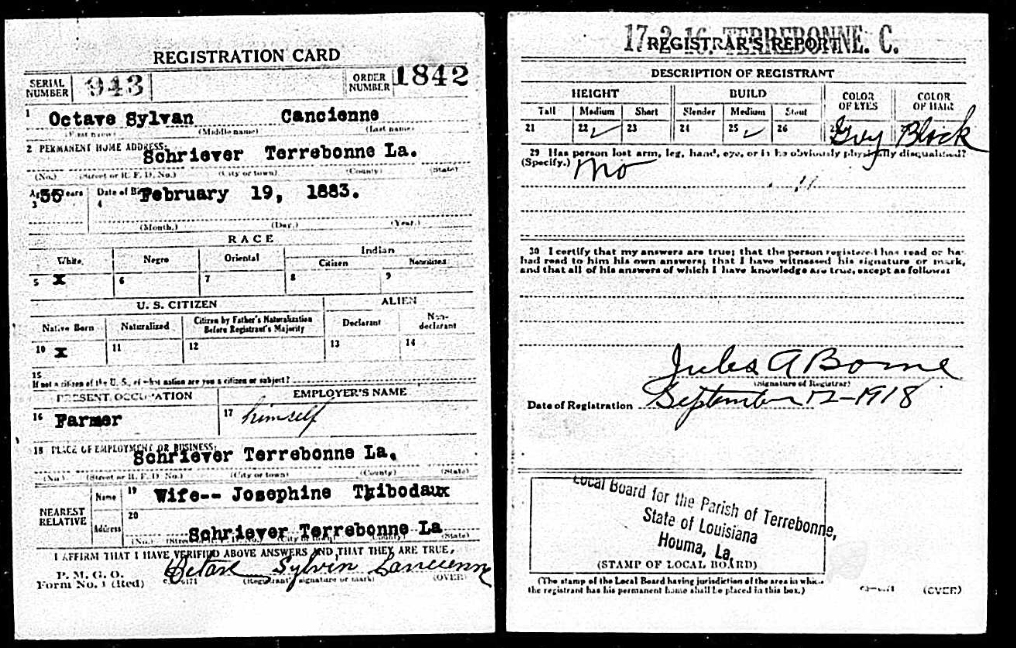 REGISTRATION CARD
SERIAL NUMBER 943 ORDER NUMBER 1842
1 Octave Sylvan Cancienne
(First name) (Middle name) (Last name)
2 PERMANENT HOME ADDRESS:
Schriever Terrebonne La.
(No.) (Street or R. F. D. No.) (City or town) (County) (State)
Age in Years 3 35 Date of Birth 4 February 19, 1883.
(Month.) (Day.) (Year.)
RACE
White Negro Oriental Indian
Citizen Noncitizen
5 X 6 7 8 9
U. S. CITIZEN ALIEN
Native Born Naturalized Citizen by Father's Naturalization Before Registrant's Majority Declarant Non-declarant
10 X 11 12 13 14
15
If not a citizen of the U. S., of what nation are you a citizen or subject?
PRESENT OCCUPATION EMPLOYER'S NAME
16 Farmer 17 himself
18 PLACE OF EMPLOYMENT OR BUSINESS:
Schriever Terrebonne La.
(No.) (Street or R. F. D. No.) (City or town) (County) (State)
NEAREST RELATIVE Name 19 Wife-- Josephine Thibodaux
Address 20 Schriever Terrebonne La
I AFFIRM THAT I HAVE VERIFIED ABOVE ANSWERS AND THAT THEY ARE TRUE,
P. M. G. O.
Form No. 1 (Red) Octave Sylvin Cancienne
(Registrant's signature or mark) (OVER)
17-2-16 TERREBONNE. C.
REGISTRAR'S REPORT
DESCRIPTION OF REGISTRANT
HEIGHT BUILD COLOR OF EYES COLOR OF HAIR
Tall Medium Short Slender Medium Stout
21 22 ✓ 23 24 25 ✓ 26 Grey Black
29 Has person lost arm, leg, hand, eye, or is he obviously physically disqualified?
(Specify.) No
30 I certify that my answers are true; that the person registered has read or has
had read to him his own answers; that I have witnessed his signature or mark,
and that all of his answers of which I have knowledge are true, except as follows:
Jules A Borne
(Signature of Registrar)
Date of Registration September 12-1918
Local Board for the Parish of Terrebonne,
State of Louisiana
Houma, La.
(STAMP OF LOCAL BOARD)
(The stamp of the Local Board having jurisdiction of the area in which
the registrant has his permanent home shall be placed in this box.)
(OVER)